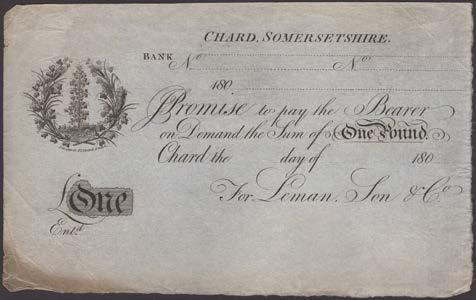 CHARD, SOMERSETSHIRE.
BANK No No
180
I Promise to pay the Bearer
on Demand the Sum of One Pound
Chard the day of 180
For Leman, Son & Co
£ One
Entd